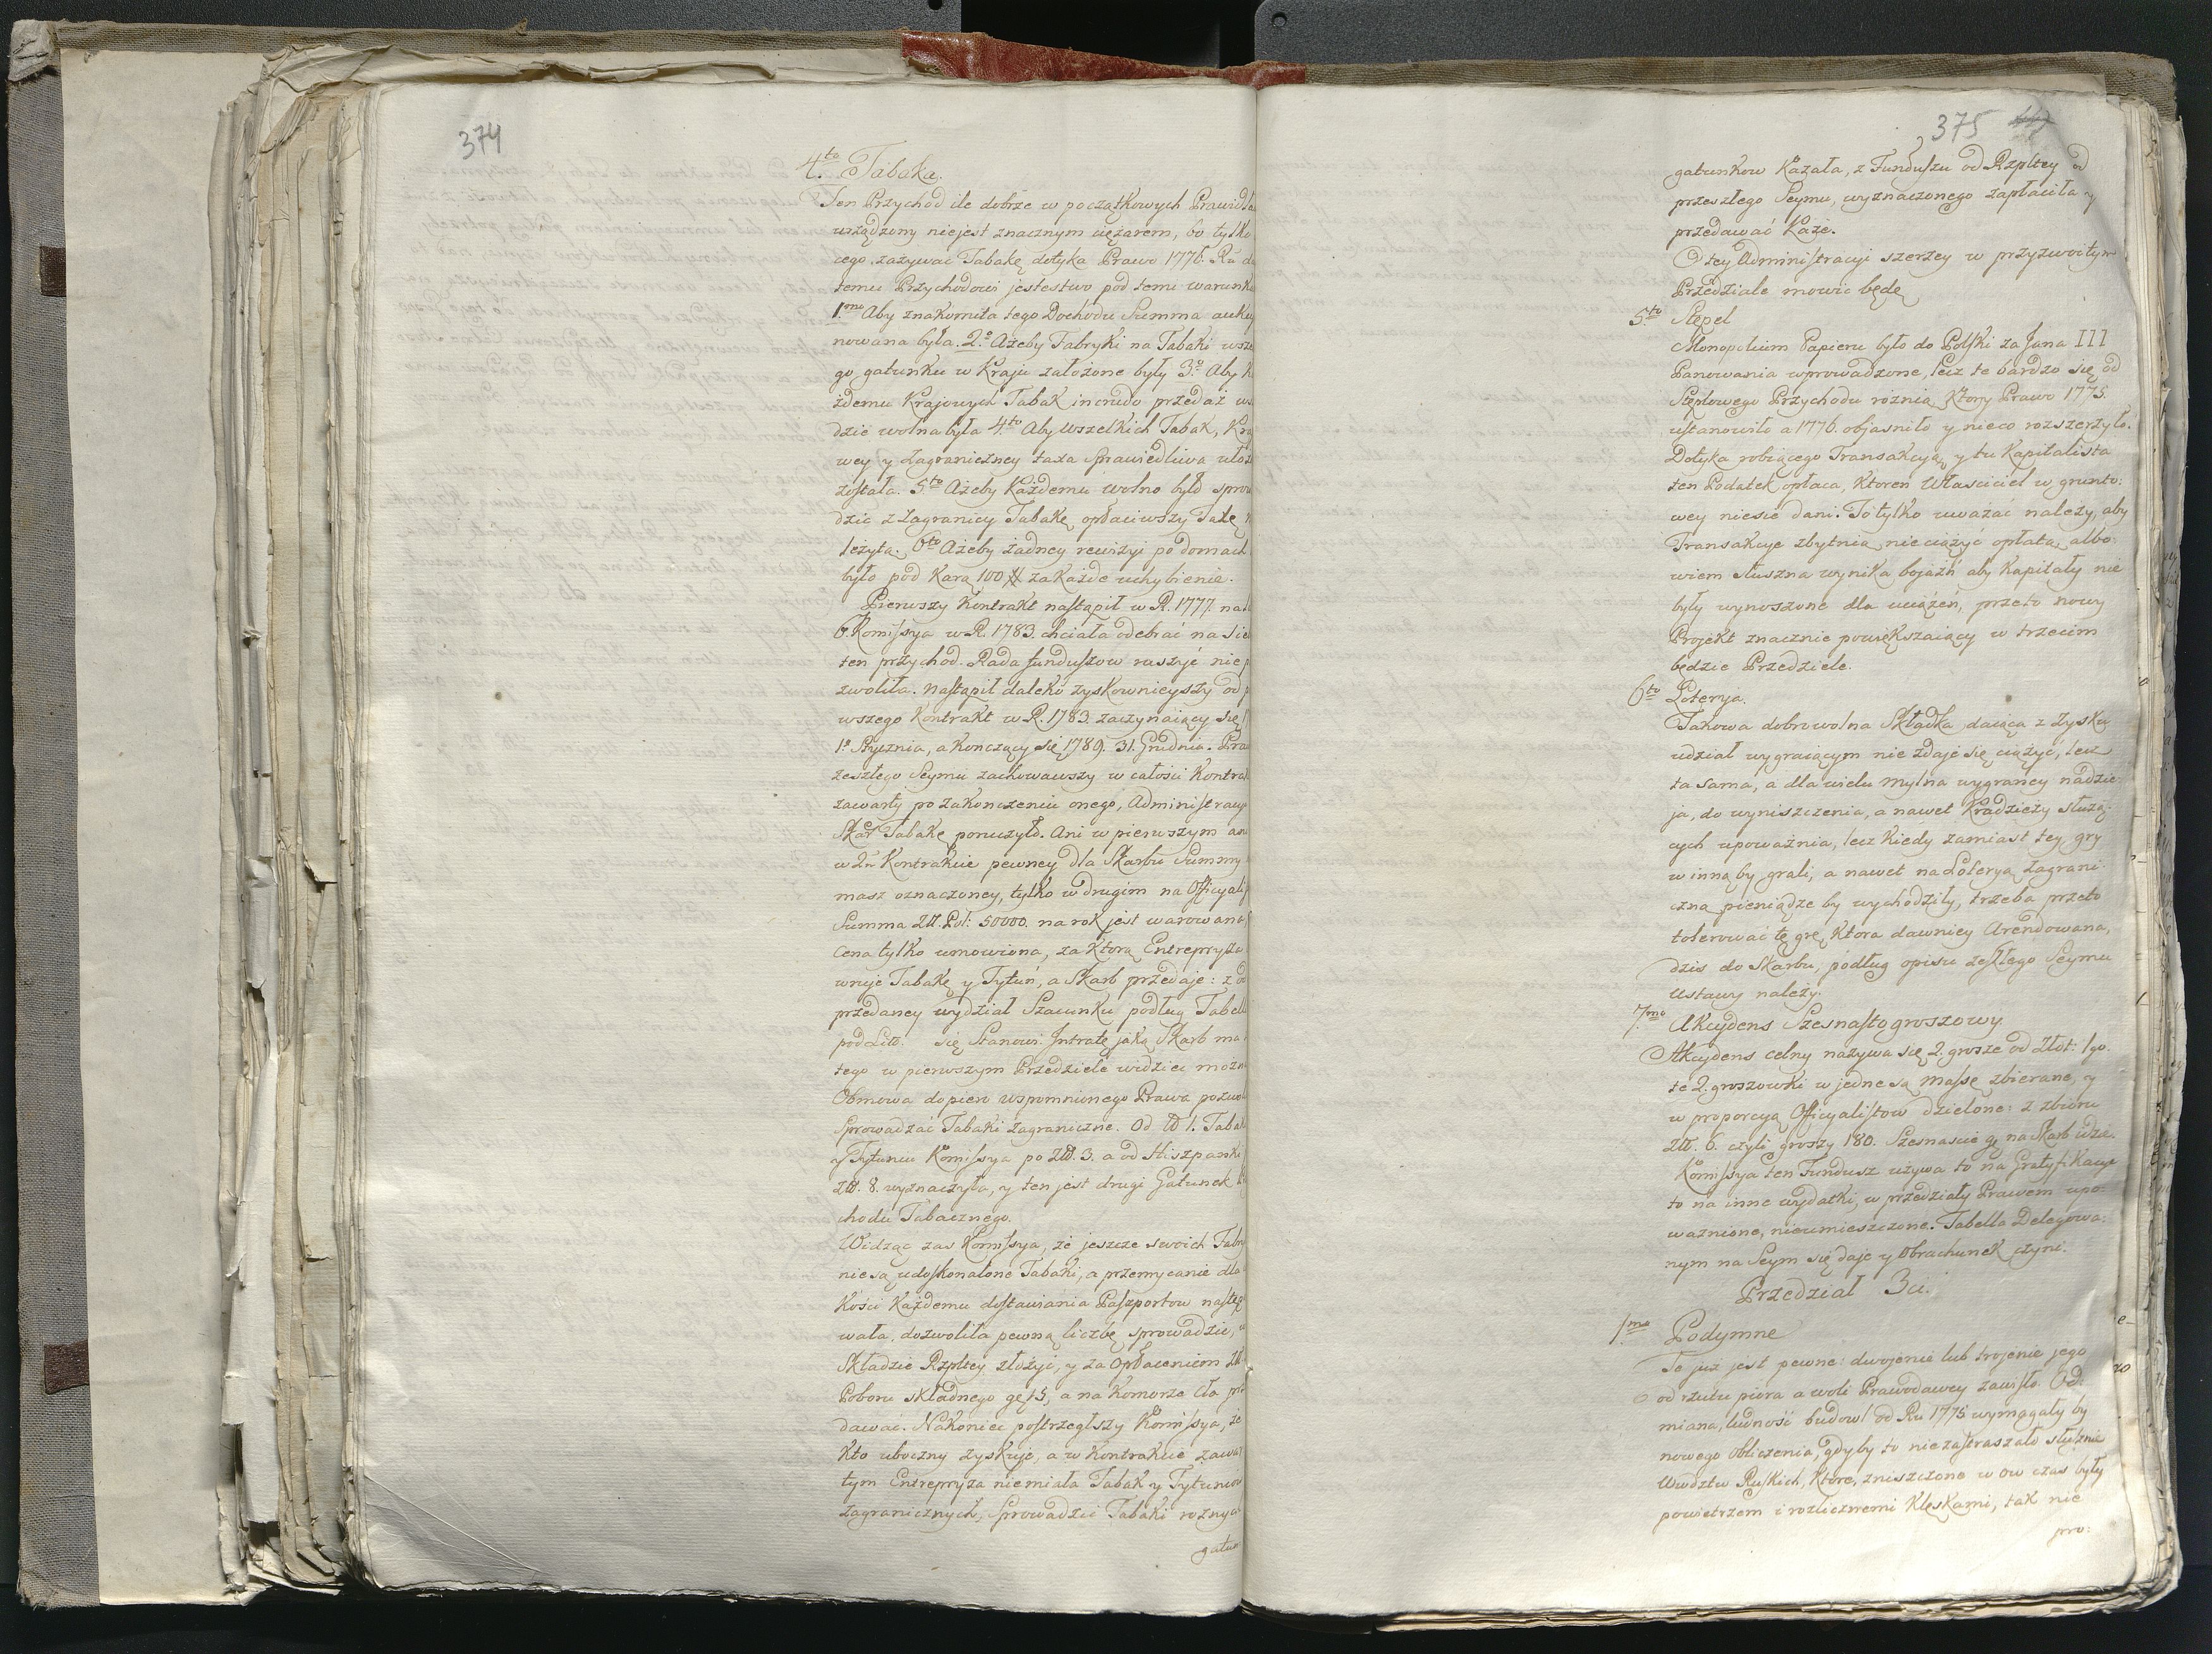 374
4.to Tabaka.
Ten Przychod ile dobrze w początkowych Prawidła
urządzony niejest znacznym ciężarem, bo tylko
cego zażywać Tabakę dotyka Prawo 1776. Ru d
temu Przychodowi jestestwo pod temi warunk
1.mo Aby znakomita tego Dochodu Summa aukcy
nowana była. 2.o Ażeby Fabryki na Tabaki wsze
go gatunku w Kraju założone były 3.o Aby k
żdemu Krajowych Tabak incrudo przedaż ws
dzie wolna była 4.to Aby wszelkich Tabak, Kra
wey y Zagraniczney taxa sprawiedliwa ułoż
została. 5.to Ażeby Każdemu wolno było sprow
dzić z Zagranicy Tabakę opłaciwszy Taxę n
leżytą. 6.to Ażeby żadney rewizyi po domach
było pod Karą 100 # za Każde uchybienie.
Pierwszy Kontrakt nastąpił w R. 1777. na l
6. Komissya w R. 1783. chciała odebrać na sie
ten przychod. Rada funduszow ruszyć nie p
zwoliła. Nastąpił daleko zyskownieyszy od p
wszego Kontrakt w R. 1783. zaczynaiący się
1.o Stycznia, a kończący się 1789. 31. Grudnia. Pra
zeszłego Seymu zachowawszy w całości Kontra
zawarty po zakonczeniu onego, Administracy
Skar: Tabakę poruczyło. Ani w pierwszym an
w 2m Kontrakcie pewney dla Skarbu Summy
masz oznaczoney, tylko w drugim na Officyali
Summa Złł. Pol: 50000. na rok jest warowana,
Cena tylko umowiona, za ktorą Entrepryza
wuje Tabakę y Tytuń, a Skarb przedaje: z od
przedaney wydział Szacunku podług Tabell
pod Litt: się Stanowi. Intratę jaką Skarb ma
tego w pierwszym Przedziele widzieć możn
Osnowa dopiero wspomnionego Prawa pozwo
Sprowadzać Tabaki zagraniczne. Od ℔ 1. Tabak
y Tytuniu Komissya po Złł. 3. a od Hiszpanki
Złł. 8. wyznaczyła, y ten jest drugi Gatunek
chodu Tabacznego.
Widząc zas Komissya, że jeszcze swoich Fabry
nie są udoskonalone Tabaki, a przemycanie dla
kości Każdemu dostawiania Paszportow nastę
wała, dozwoliła pewną liczbę sprowadzić,
Składzie Rzpltey złożyć, y za Opłaceniem Złł
Poboru składnego gr 15, a na Komorze Cła pr
dawać. Nakoniec postrzegłszy Komissya, że
Kto uboczny zyskuje, a w Kontrakcie zawar
tym Entrepryza niemiała Tabak y Tytuniow
zagranicznych, Sprowadzić Tabaki rożnych
gatun
375
gatunkow Kazała, z Funduszu od Rzpltey od
przeszłego Seymu, wyznaczonego zapłaciła y
przedawać Każe.
O tey Administracyi szerzey w przyzwoitym
Przedziale mowić będę
5.to Stępel
Monopolium Papieru było do Polski za Jana III
Panowania wprowadzone, lecz te bardzo się od
Stęplowego Przychodu rożnią, Ktory Prawo 1775.
ustanowiło a 1776. objasniło y nieco rozszerzyło.
Dotyka robiącego Transakcyą y tu Kapitalista
ten Podatek opłaca, Ktoren Własciciel w grunto:
wey niesie dani. To tylko uważać należy, aby
Transakcye zbytnią nie ciążyć opłatą, albo:
wiem słuszna wynika bojaźń aby Kapitały nie
były wynoszone dla uciążeń, przeto nowy
Projekt znacznie powiększaiący w trzecim
będzie Przedziele.
6.to Loterya.
Takowa dobrowolna Składka daiąca z Zysku
udział wygraiącym nie zdaje się ciążyć, lecz
ta sama, a dla wielu mylna wygraney nadzie:
ja, do wyniszczenia, a nawet Kradzieży służą:
cych upoważnia, lecz Kiedy zamiast tey gry
w inną by grali, a nawet na Loteryą Zagrani:
czną pieniądze by wychodziły, trzeba przeto
tolerować tę grę, Ktora dawniey Arendowana,
dzis do Skarbu, podług opisu zeszłego Seymu
Ustawy należy.
7.mo Akcydens Szesnastogroszowy.
Akcydens celny nazywa się 2. grosze od Złot: 1go.
te 2. groszowki w jedne są massę zbierane, y
w proporcyą Officyalistow dzielone: z zbioru
Złł. 6. czyli groszy 180. Szesnascie gr na Skarb idzie.
Komissya ten Fundusz używa to na Gratyfikacye
to na inne wydatki, w przedziały Prawem upo:
ważnione, nieumieszczone. Tabella Delegowa:
nym na Seym się daje y Obrachunek czyni.
Przedział 3ci.
1.mo Podymne
Te już jest pewne: dwojenie lub trojenie jego
od rzutu piora a woli Prawodawcy zawisło. Od:
miana, ludność budowl od Ru 1775 wymagały by
nowego obliczenia, gdyby to niezastraszało słusznie
Wwdztw Ruskich, Ktore, zniszczone w ow czas były
powietrzem i rozlicznemi Klęskami, tak nie
pro: